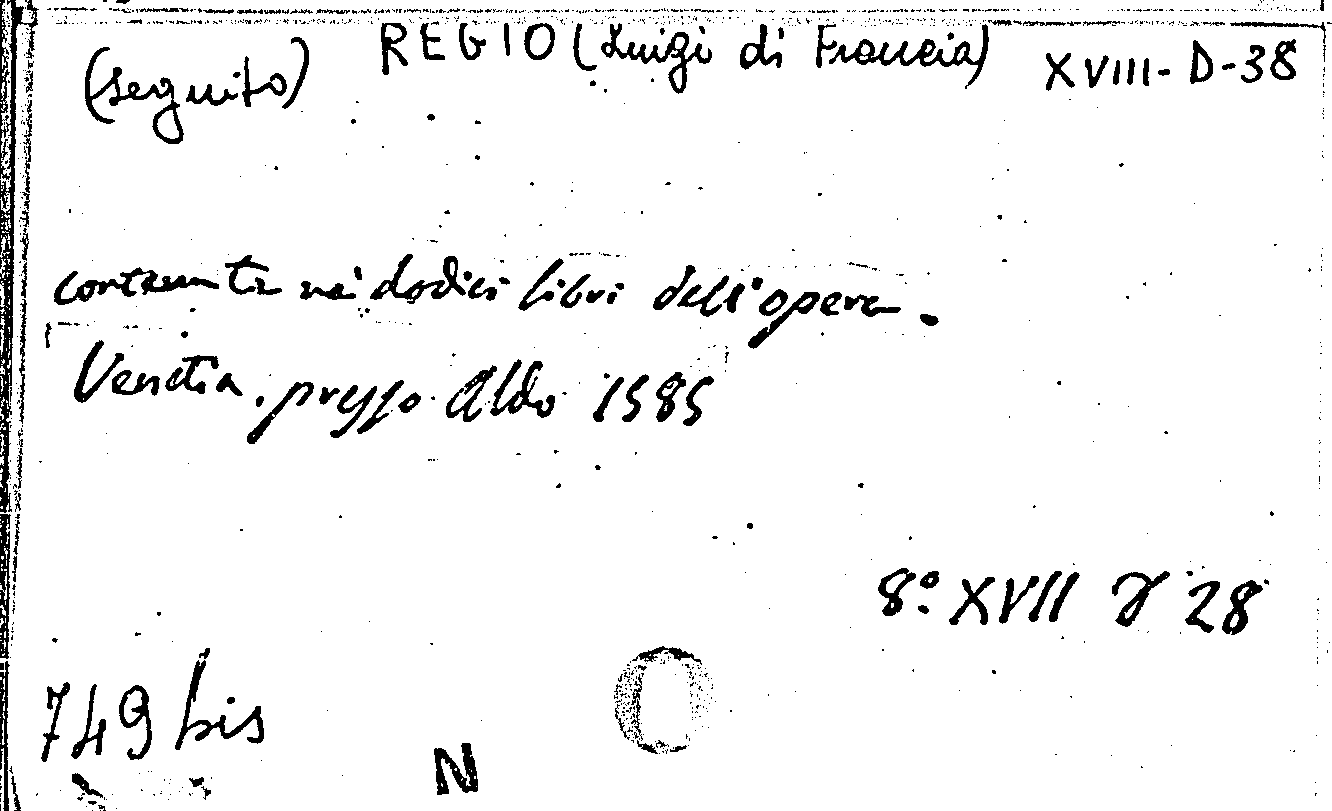 (seguito) REGIO (Luigi di Francia) XVIII-D-38
contenuta ne' dodici libri dell'opera.
Venetia, presso Aldo 1585
8.° XVII 28
749 bis
N